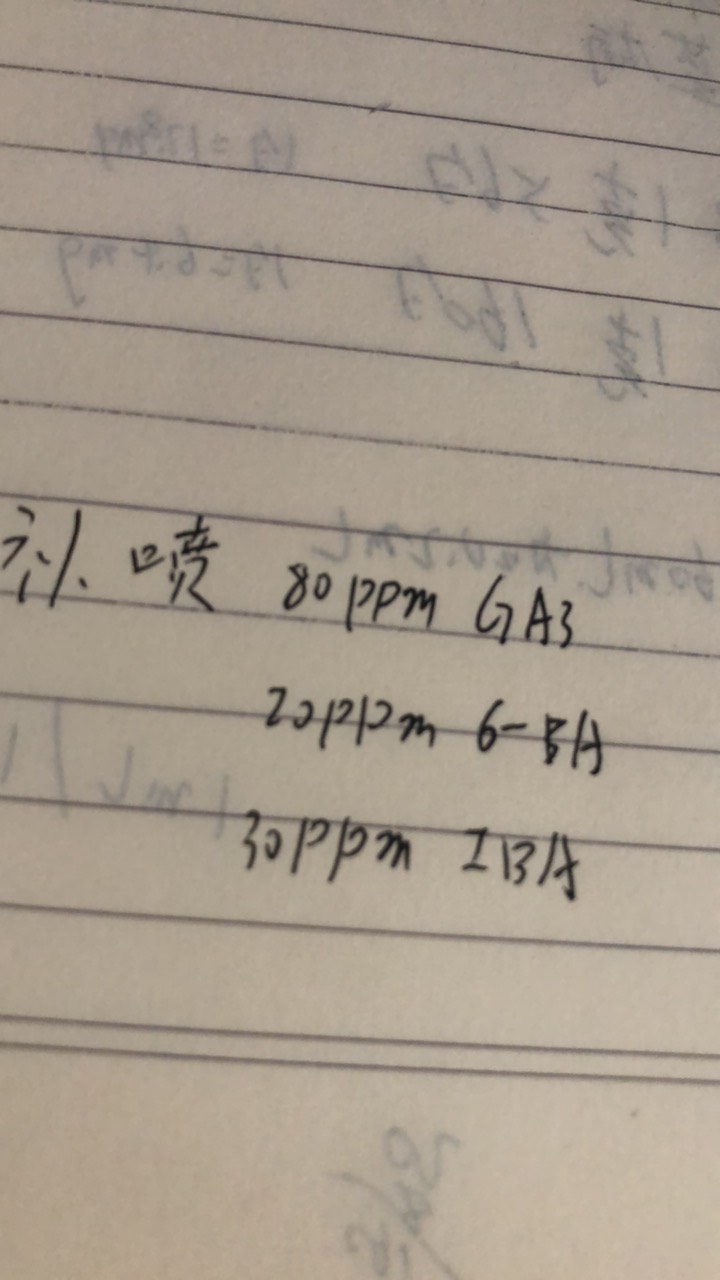 补喷 80ppm GA3
20ppm 6-BA
30ppm IBA